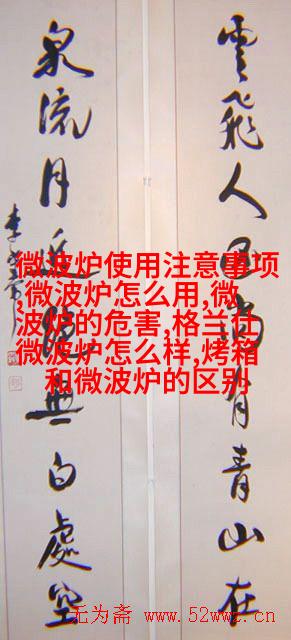 雲飛人尚有青山在
泉流月無白處空
李
微波炉使用注意事项
,微波炉怎么用,微
波炉的危害,格兰仕
微波炉怎么样,烤箱
和微波炉的区别
无为斋 www.52wwz.cn